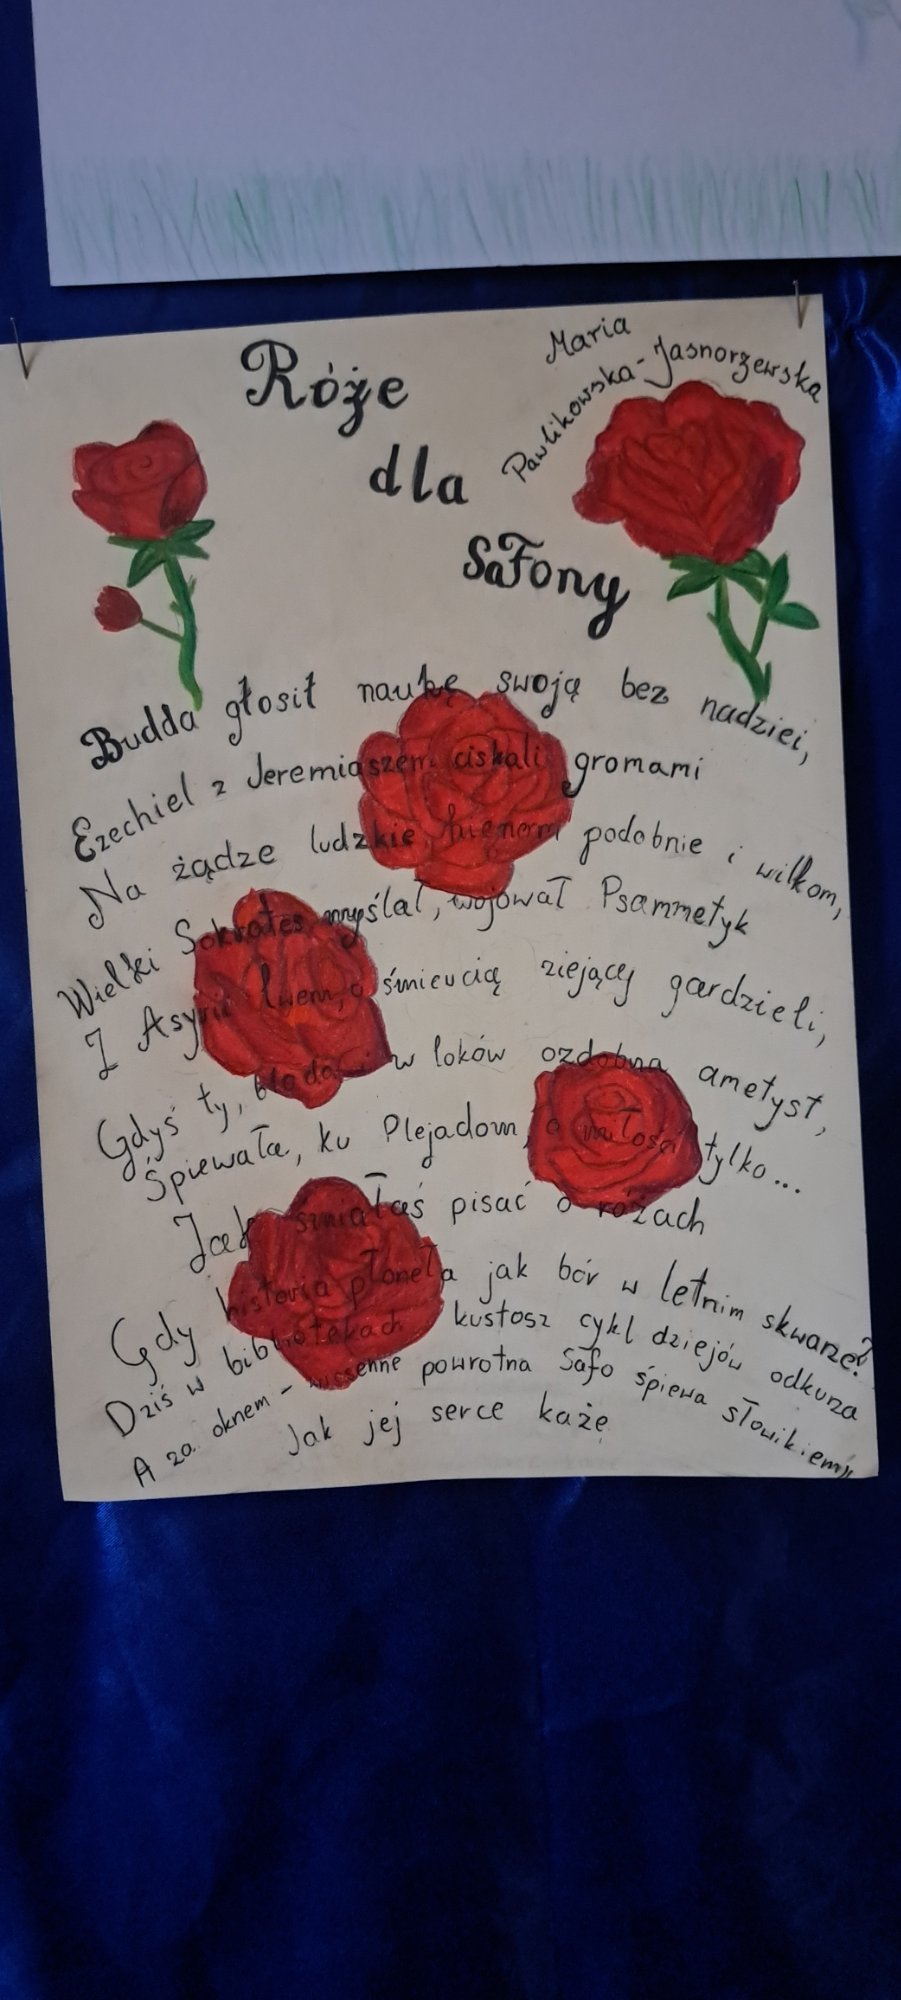 Róże
dla
Safony
Maria
Pawlikowska-Jasnorzewska
Budda głosił naukę swoją bez nadziei,
Ezechiel z Jeremiaszem ciskali gromami
Na żądze ludzkie, hienom podobnie i wilkom,
Wielki Sokrates myślał, wojował Psammetyk
Z Asyrii lwem, o śmiercią ziejącej gardzieli,
Gdyś ty, blada, w loków ozdobna ametyst,
Śpiewała, ku Plejadom, o miłości tylko...
Jak śmiałaś pisać o różach
Gdy historia płonęła jak bór w letnim skwarze?
Dziś w bibliotekach kustosz cykl dziejów odkurza
A za oknem - wiosenne powrotna Safo śpiewa słowikiem,
Jak jej serce każe